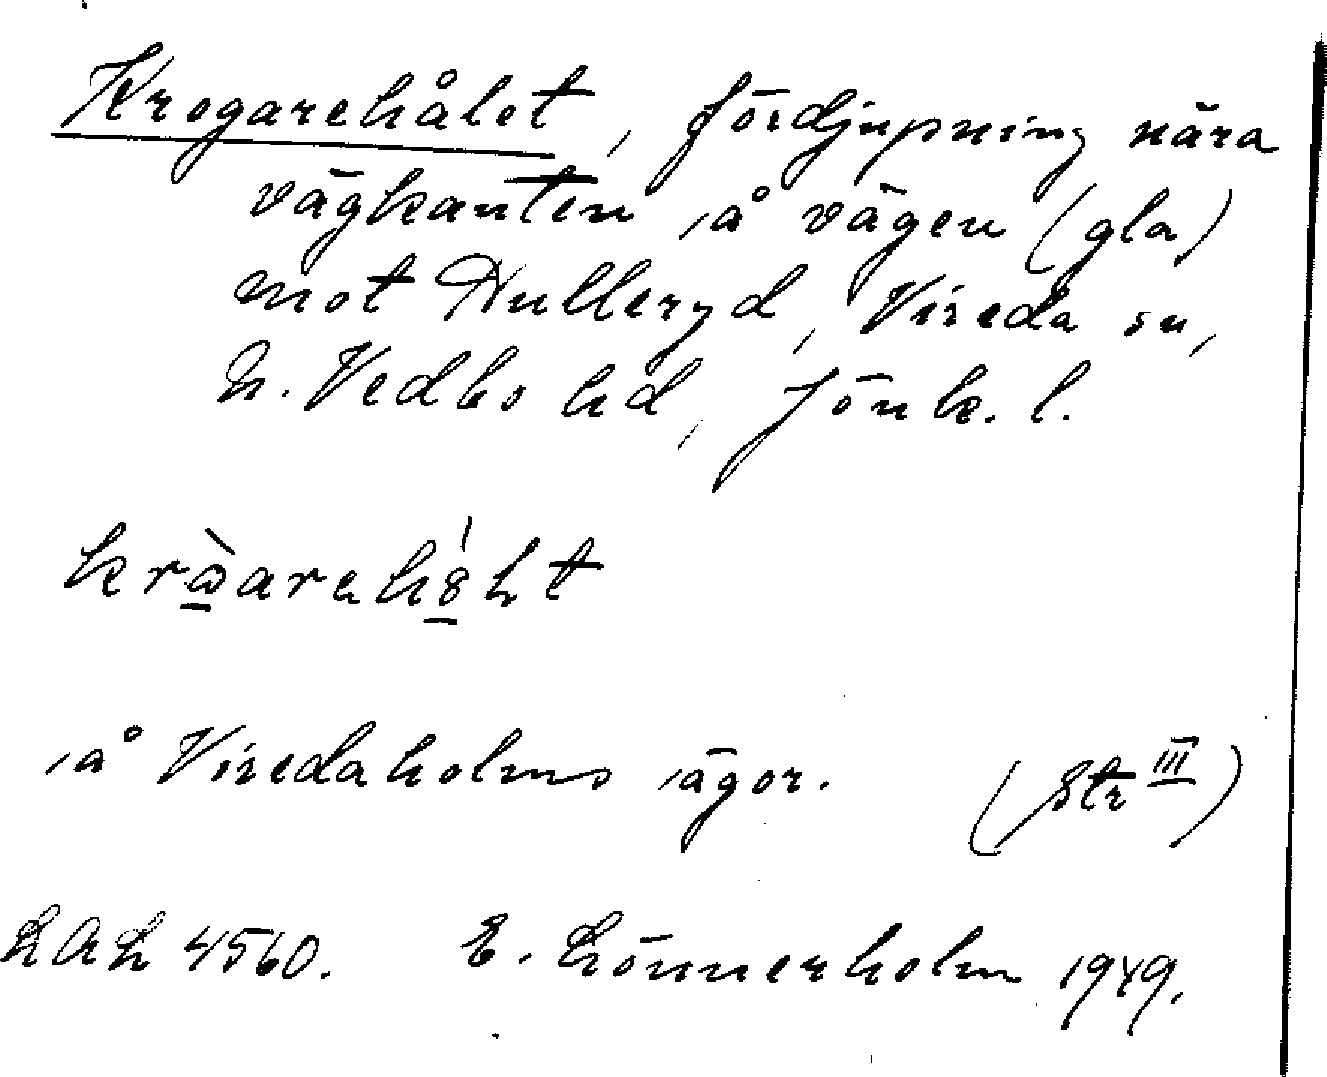 Krogarehålet, fördjupning nära
vägkanten å vägen (gla)
mot Hulleryd, Vireda sn,
N. Vedbo hd, Jönk. l.
å Viredaholms ägor. (Str III)
LAL 4560. E. Lönnerholm 1949.